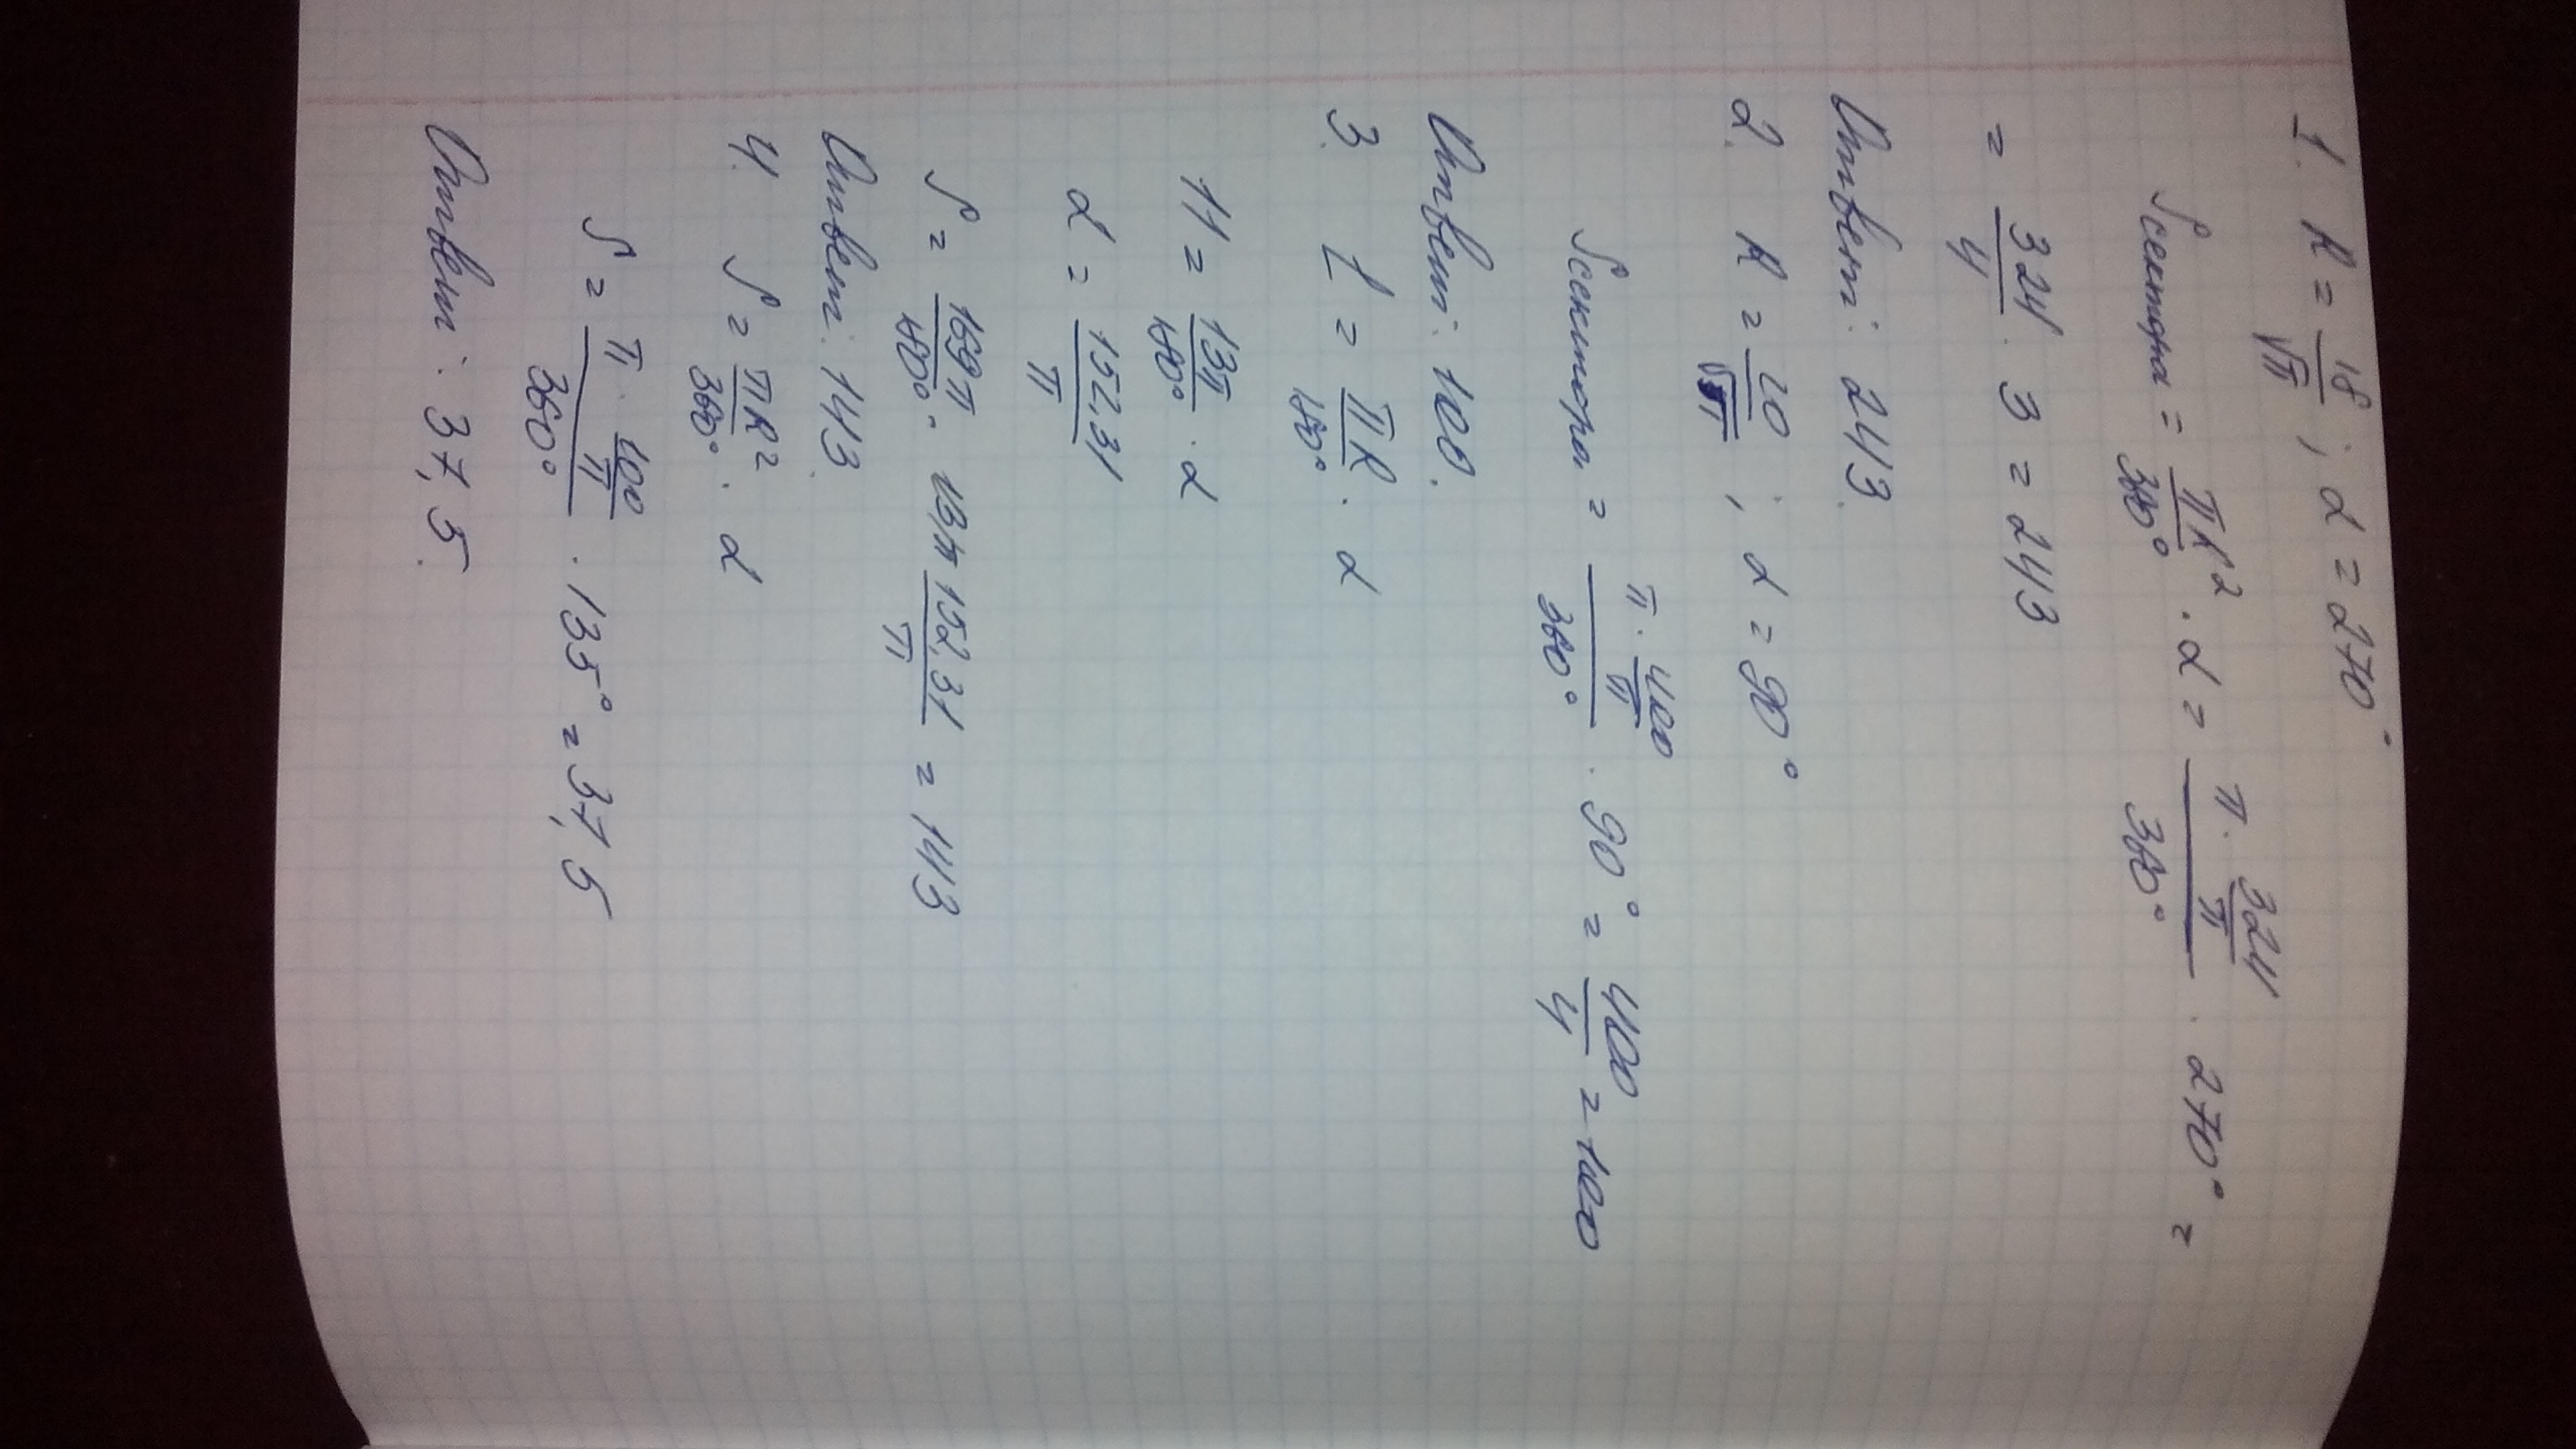 1. R = 18/√π ; α = 270°
Sсектора = πR²/360° · α = (π · 324/π)/360° · 270° =
= 324/4 · 3 = 243
Ответ: 243.
2. R = 20/√π ; α = 90°
Sсектора = (π · 400/π)/360° · 90° = 400/4 = 100
Ответ: 100.
3. L = πR/180° · α
11 = 13π/180° · α
α = 152,31/π
S = 169π/180° · 152,31/π = 143
Ответ: 143.
4. S = πR²/360° · α
S = (π · 100/π)/360° · 135° = 37,5
Ответ: 37,5.